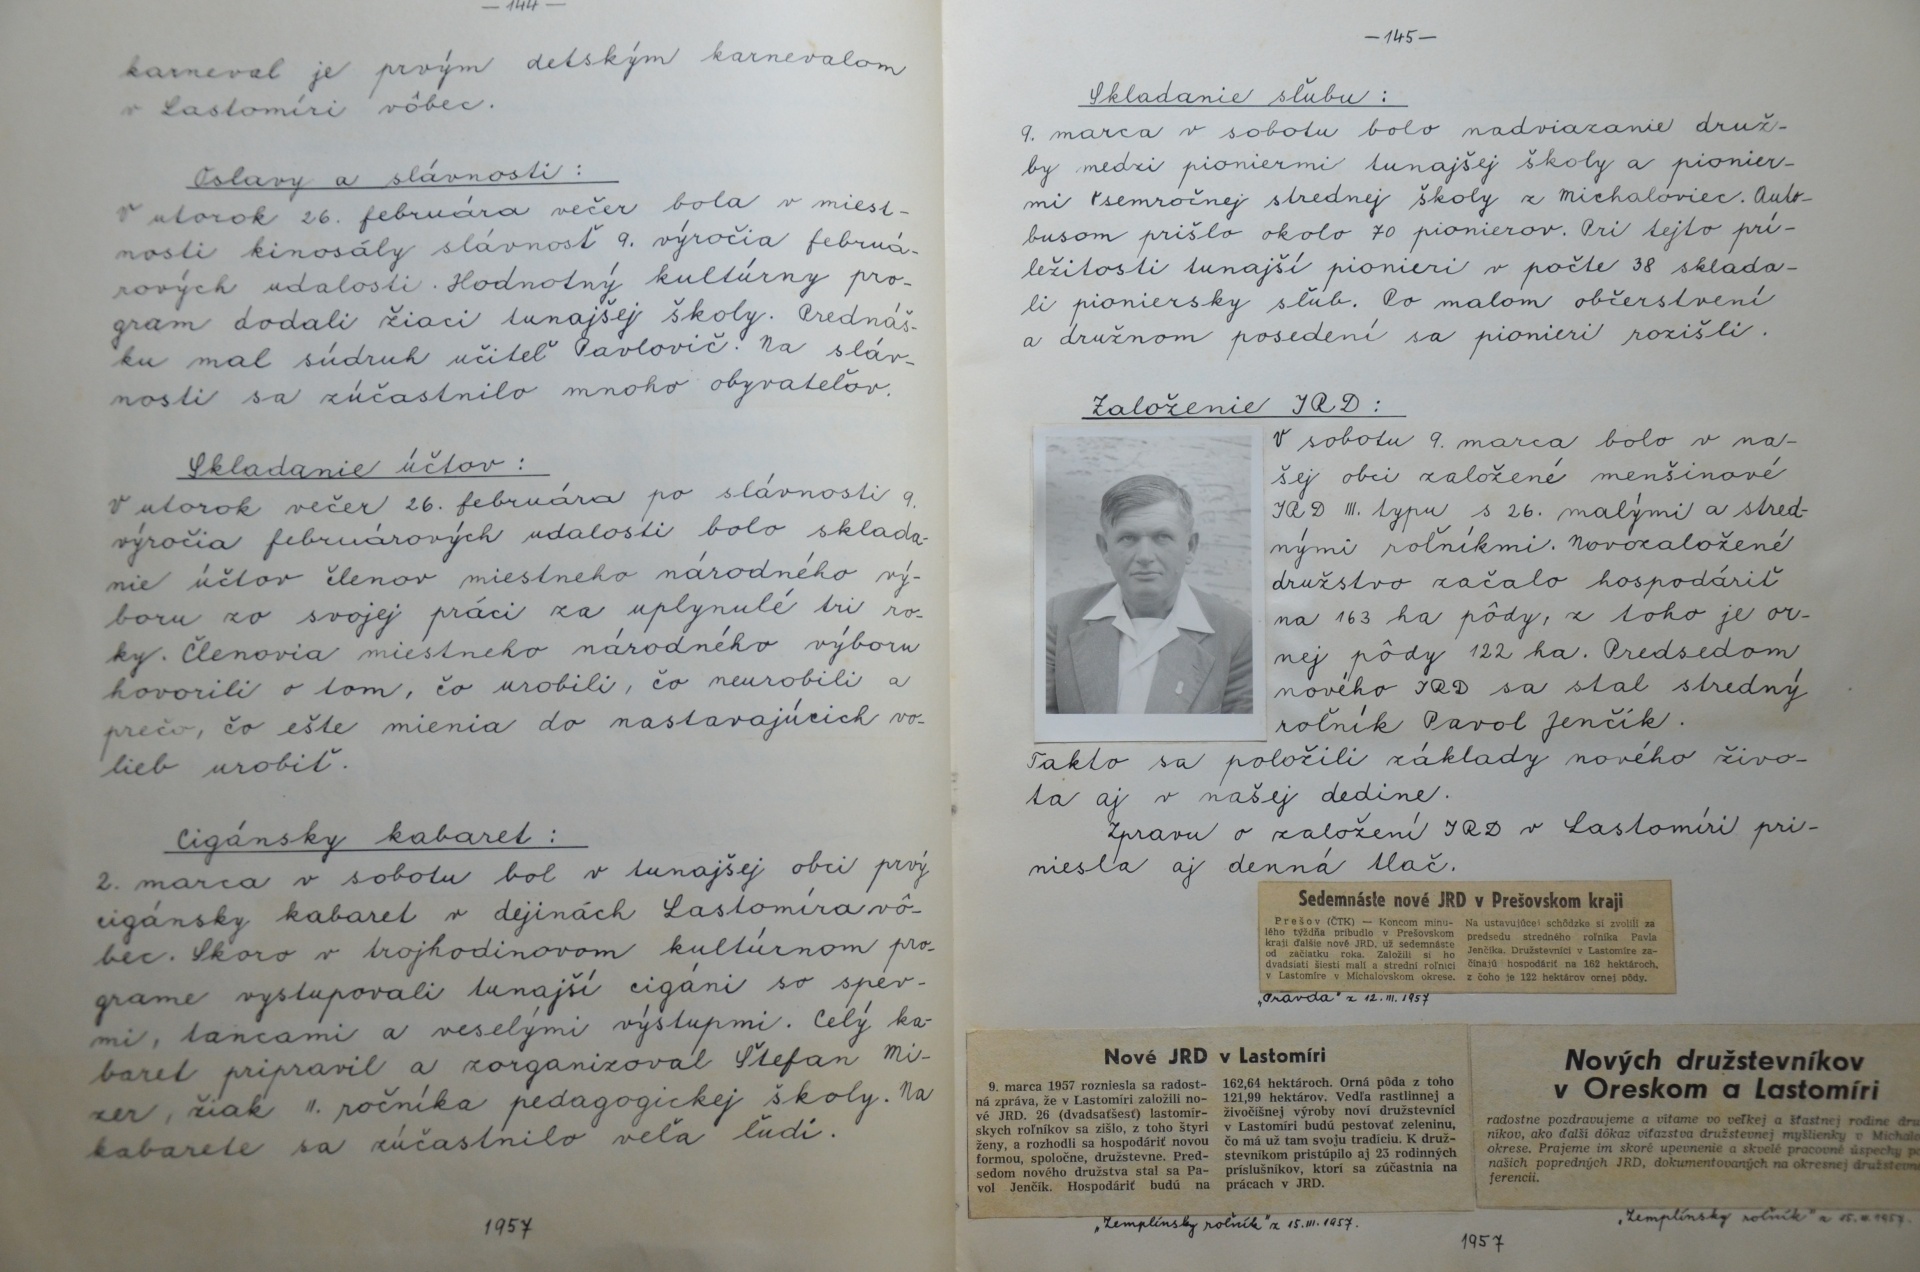 — 144 —
karneval je prvým detským karnevalom
v Lastomíri vôbec.
Oslavy a slávnosti :
V utorok 26. februára večer bola v miest-
nosti kinosály slávnosť 9. výročia februá-
rových udalosti. Hodnotný kultúrny pro-
gram dodali žiaci tunajšej školy. Prednáš-
ku mal súdruh učiteľ Pavlovič. Na sláv-
nosti sa zúčastnilo mnoho obyvateľov.
Skladanie účtov :
V utorok večer 26. februára po slávnosti 9.
výročia februárových udalosti bolo sklada-
nie účtov členov miestneho národného vý-
boru zo svojej práci za uplynulé tri ro-
ky. Členovia miestneho národného výboru
hovorili o tom, čo urobili, čo neurobili a
prečo, čo ešte mienia do nastavajúcich vo-
lieb urobiť.
Cigánsky kabaret :
2. marca v sobotu bol v tunajšej obci prvý
cigánsky kabaret v dejinách Lastomíra vô-
bec. Skoro v trojhodinovom kultúrnom pro-
grame vystupovali tunajší cigáni so spev-
mi, tancami a veselými výstupmi. Celý ka-
baret pripravil a zorganizoval Štefan Mi-
zer, žiak II. ročníka pedagogickej školy. Na
kabarete sa zúčastnilo veľa ľudí.
1957
— 145 —
Skladanie sľubu :
9. marca v sobotu bolo nadviazanie druž-
by medzi pioniermi tunajšej školy a pionier-
mi Osemročnej strednej školy z Michaloviec. Auto-
busom prišlo okolo 70 pionierov. Pri tejto prí-
ležitosti tunajší pionieri v počte 38 sklada-
li pioniersky sľub. Po malom občerstvení
a družnom posedení sa pionieri rozišli.
Založenie JRD :
V sobotu 9. marca bolo v na-
šej obci založené menšinové
JRD III. typu s 26. malými a stred-
nými roľníkmi. Novozaložené
družstvo začalo hospodáriť
na 163 ha pôdy, z toho je or-
nej pôdy 122 ha. Predsedom
nového JRD sa stal stredný
roľník Pavol Jenčík.
Takto sa položili základy nového živo-
ta aj v našej dedine.
Zpravu o založení JRD v Lastomíri pri-
niesla aj denná tlač.
Sedemnáste nové JRD v Prešovskom kraji
Prešov (ČTK) — Koncom minu-
lého týždňa pribudlo v Prešovskom
kraji ďalšie nové JRD, už sedemnáste
od začiatku roka. Založili si ho
dvadsiati šiesti malí a strední roľníci
v Lastomíre v Michalovskom okrese.
Na ustavujúcej schôdzke si zvolili za
predsedu stredného roľníka Pavla
Jenčíka. Družstevníci v Lastomíre za-
čínajú hospodáriť na 162 hektároch,
z čoho je 122 hektárov ornej pôdy.
„Pravda" z 12. III. 1957
Nové JRD v Lastomíri
9. marca 1957 rozniesla sa radost-
ná zpráva, že v Lastomíri založili no-
vé JRD. 26 (dvadsaťšesť) lastomír-
skych roľníkov sa zišlo, z toho štyri
ženy, a rozhodli sa hospodáriť novou
formou, spoločne, družstevne. Pred-
sedom nového družstva stal sa Pa-
vol Jenčík. Hospodáriť budú na
162,64 hektároch. Orná pôda z toho
121,99 hektárov. Vedľa rastlinnej a
živočíšnej výroby noví družstevníci
v Lastomíri budú pestovať zeleninu,
čo má už tam svoju tradíciu. K druž-
stevníkom pristúpilo aj 23 rodinných
príslušníkov, ktorí sa zúčastnia na
prácach v JRD.
„Zemplínsky roľník" z 15. III. 1957.
Nových družstevníkov
v Oreskom a Lastomíri
radostne pozdravujeme a vítame vo veľkej a šťastnej rodine dru
níkov, ako ďalší dôkaz víťazstva družstevnej myšlienky v Michalo
okrese. Prajeme im skoré upevnenie a skvelé pracovné úspechy p
našich popredných JRD, dokumentovaných na okresnej družstevn
ferencii.
„Zemplínsky roľník" z 15. III. 1957.
1957